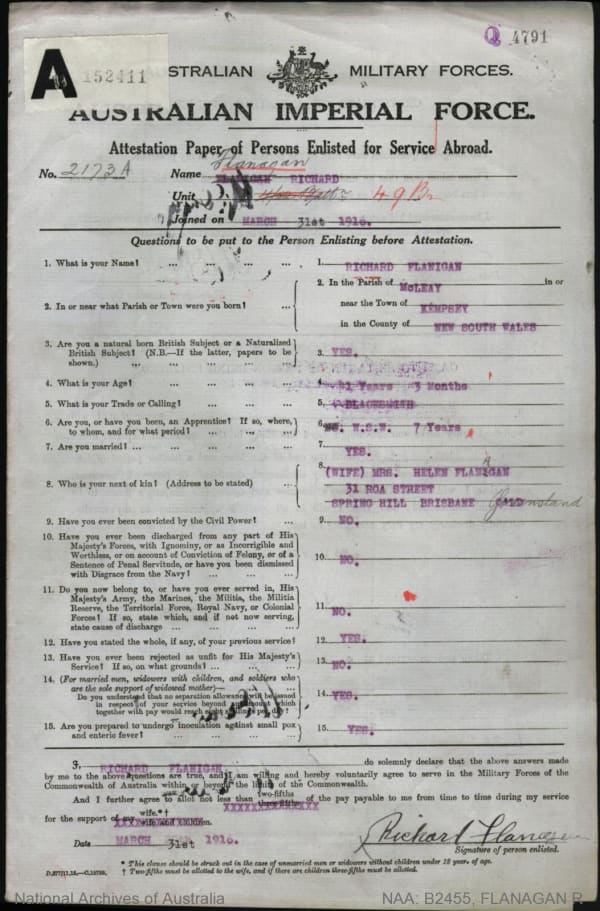 Q 4791
A 152411
AUSTRALIAN MILITARY FORCES.
AUSTRALIAN IMPERIAL FORCE.
Attestation Paper of Persons Enlisted for Service Abroad.
Flanagan
No. 2173A Name FLANIGAN RICHARD
Unit 49 Bn
Joined on MARCH 31st 1916.
Questions to be put to the Person Enlisting before Attestation.
1. What is your Name? ... ... ... ... 1. RICHARD FLANIGAN
2. In or near what Parish or Town were you born? ... 2. In the Parish of McLEAY in or
near the Town of KEMPSEY
in the County of NEW SOUTH WALES
3. Are you a natural born British Subject or a Naturalized
British Subject? (N.B.—If the latter, papers to be
shown.) ... ... ... ... 3. YES.
4. What is your Age? ... ... ... ... 4. 41 Years 3 Months
5. What is your Trade or Calling? ... ... ... 5. BLACKSMITH
6. Are you, or have you been, an Apprentice? If so, where,
to whom, and for what period? ... ... ... 6. N.S.W. 7 Years
7. Are you married? ... ... ... ... ... 7. YES.
8. Who is your next of kin? (Address to be stated) ... 8. (WIFE) MRS. HELEN FLANIGAN
31 ROA STREET
SPRING HILL BRISBANE Queensland
9. Have you ever been convicted by the Civil Power? ... 9. NO.
10. Have you ever been discharged from any part of His
Majesty's Forces, with Ignominy, or as Incorrigible and
Worthless, or on account of Conviction of Felony, or of a
Sentence of Penal Servitude, or have you been dismissed
with Disgrace from the Navy? ... ... ... 10. NO.
11. Do you now belong to, or have you ever served in, His
Majesty's Army, the Marines, the Militia, the Militia
Reserve, the Territorial Force, Royal Navy, or Colonial
Forces? If so, state which, and if not now serving,
state cause of discharge ... ... ... ... 11. NO.
12. Have you stated the whole, if any, of your previous service? 12. YES.
13. Have you ever been rejected as unfit for His Majesty's
Service? If so, on what grounds? ... ... ... 13. NO.
14. (For married men, widowers with children, and soldiers who
are the sole support of widowed mother)— ... ...
Do you understand that no separation allowance will be issued
in respect of your service beyond an amount which
together with pay would reach eight shillings per day? 14. YES.
15. Are you prepared to undergo inoculation against small pox
and enteric fever? ... ... ... ... 15. YES.
I, RICHARD FLANIGAN do solemnly declare that the above answers made
by me to the above questions are true, and I am willing and hereby voluntarily agree to serve in the Military Forces of the
Commonwealth of Australia within or beyond the limits of the Commonwealth.
And I further agree to allot not less than two-fifths three-fifths of the pay payable to me from time to time during my service
for the support of my wife.*† wife and children.
Date MARCH 31st 1916. Richard Flanagan
Signature of person enlisted.
* This clause should be struck out in the case of unmarried men or widowers without children under 18 years of age.
† Two-fifths must be allotted to the wife, and if there are children three-fifths must be allotted.
National Archives of Australia NAA: B2455, FLANAGAN R